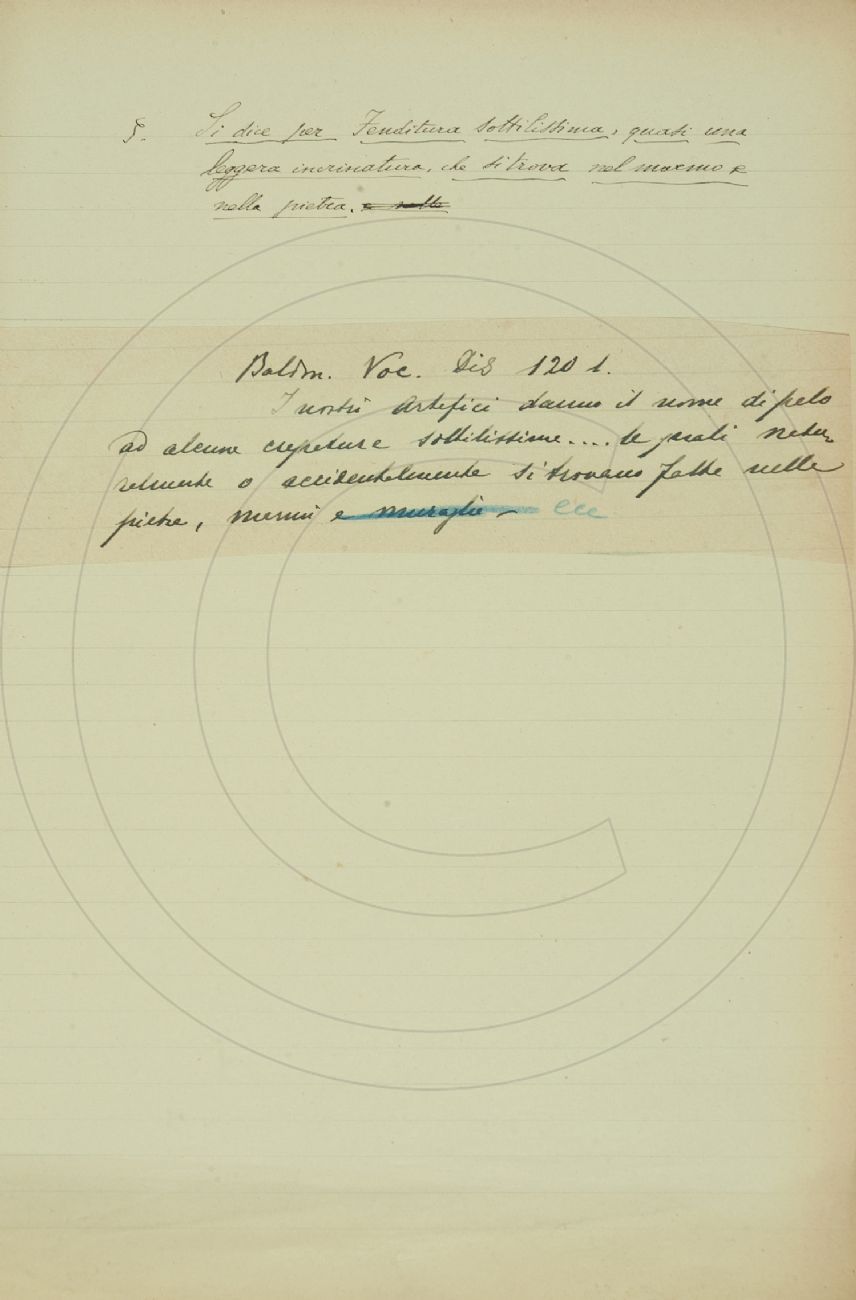 §. Si dice per Fenditura sottilissima, quasi una
leggera incrinatura, che si trova nel marmo e
nella pietra. e nelle
Baldin. Voc. Dis 120 1.
I nostri Artefici danno il nome di pelo
ad alcune crepature sottilissime.... le quali natu-
ralmente o accidentalmente si trovano fatte nelle
pietre, marmi e muraglie - ecc